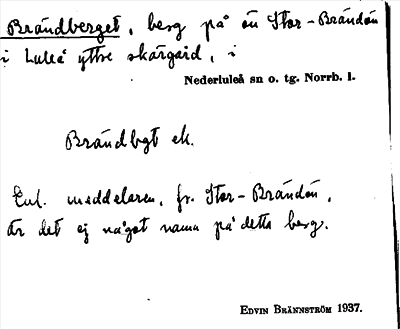 Brändberget, berg på ön Stor-Brändön
i Luleå yttre skärgård, i
Nederluleå sn o. tg. Norrb. l.
Brändbgt ek.
Enl. meddelaren, fr. Stor-Brändön,
är det ej något namn på detta berg.
EDVIN BRÄNNSTRÖM 1937.